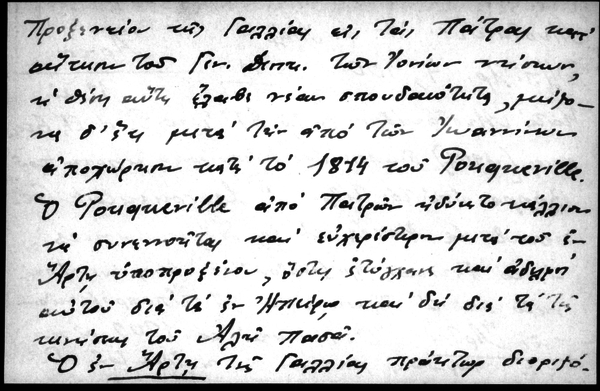 Προξενείου τῆς Γαλλίας εἰς τὰς Πάτρας κατ'
αἴτησιν τοῦ Γεν. Διοικ. τῶν Ἰονίων νήσων,
ἡ θέσις αὕτη ἔλαβε νέαν σπουδαιότητα, μείζο-
να δ' ἔτι μετὰ τὴν ἀπὸ τῶν Ἰωαννίνων
ἀποχώρησιν κατὰ τὸ 1814 τοῦ Pouqueville.
Ὁ Pouqueville ἀπὸ Πατρῶν ἠδύνατο κάλλιον
νὰ συνεννοῆται καὶ εὐχερέστερον μετὰ τοῦ ἐν
Ἄρτῃ ὑποπροξένου, ὅστις ἐτύγχανε καὶ ἀδελφός
αὐτοῦ διὰ τὰ ἐν Ἠπείρῳ καὶ δὴ διὰ τὰς
κινήσεις τοῦ Ἀλῆ Πασᾶ.
Ὁ ἐν Ἄρτῃ τῆς Γαλλίας πράκτωρ διοριζό-